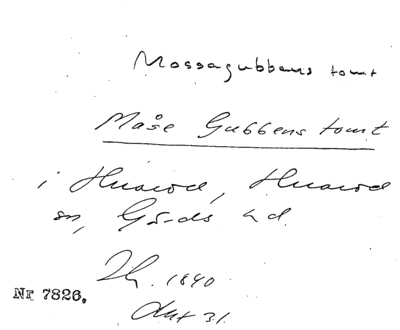 Mossagubbens tomt
Måse Gubbens tomt
i Huarod, Huarod
sn, Gärds hd.
1840
Nr 7826.
Akt 31.